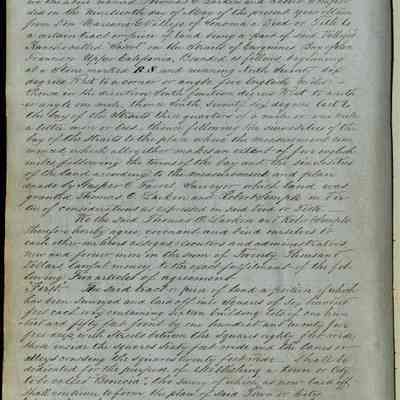 ded on the Nineteenth day of May of the present year obtain
from Don Mariano G Vallejo of Sonoma a Deed or Title to
a certain tract or piece of land being a part of said Vallejo's
Rancho called "Suscol" on the Straits of Carquinez Bay of San
Francisco Upper California, Bounded as follows, beginning
at a stone marked R.S. and running North Seventy six
degrees West to a corner or angle five English miles
thence in the direction South fourteen degrees West to a
or angle one mile, thence South Seventy six degrees East to
the bay of the Straits three quarters of a mile or one mile
a little more or less, thence following the sinuosities of the
bay of the Straits to the place where the measurement com
menced which altogether makes an extent of five english
miles following the turns of the bay and the sinuosities
of the land according to the measurement and plan
made by Jasper O'Farrell Surveyor, which land was
granted Thomas O. Larkin and Robert Semple in
of considerations as expressed in said Deed or Title.
We the said Thomas O. Larkin and Robt Semple
therefore hereby agree, covenant and bind ourselves to
each other our heirs assigns executors and administrators
now and forever more in the sum of Twenty Thousand
Dollars lawful money to the exact fulfilment of the fol
lowing Five articles of agreement
First The said tract or piece of land a portion of which
has been surveyed and laid off into Squares of Six hundred
feet each way containing sixteen building lots of one hun
dred and fifty feet front by one hundred and twenty five
feet deep with Streets between the Squares eighty feet wide
those inside the Squares sixty feet wide and the lanes or
alleys crossing the Squares twenty feet wide Shall be
dedicated for the purpose of establishing a town or City
to be called "Benicia", the survey of which as now laid off
shall continue to form the plan of said Town or City